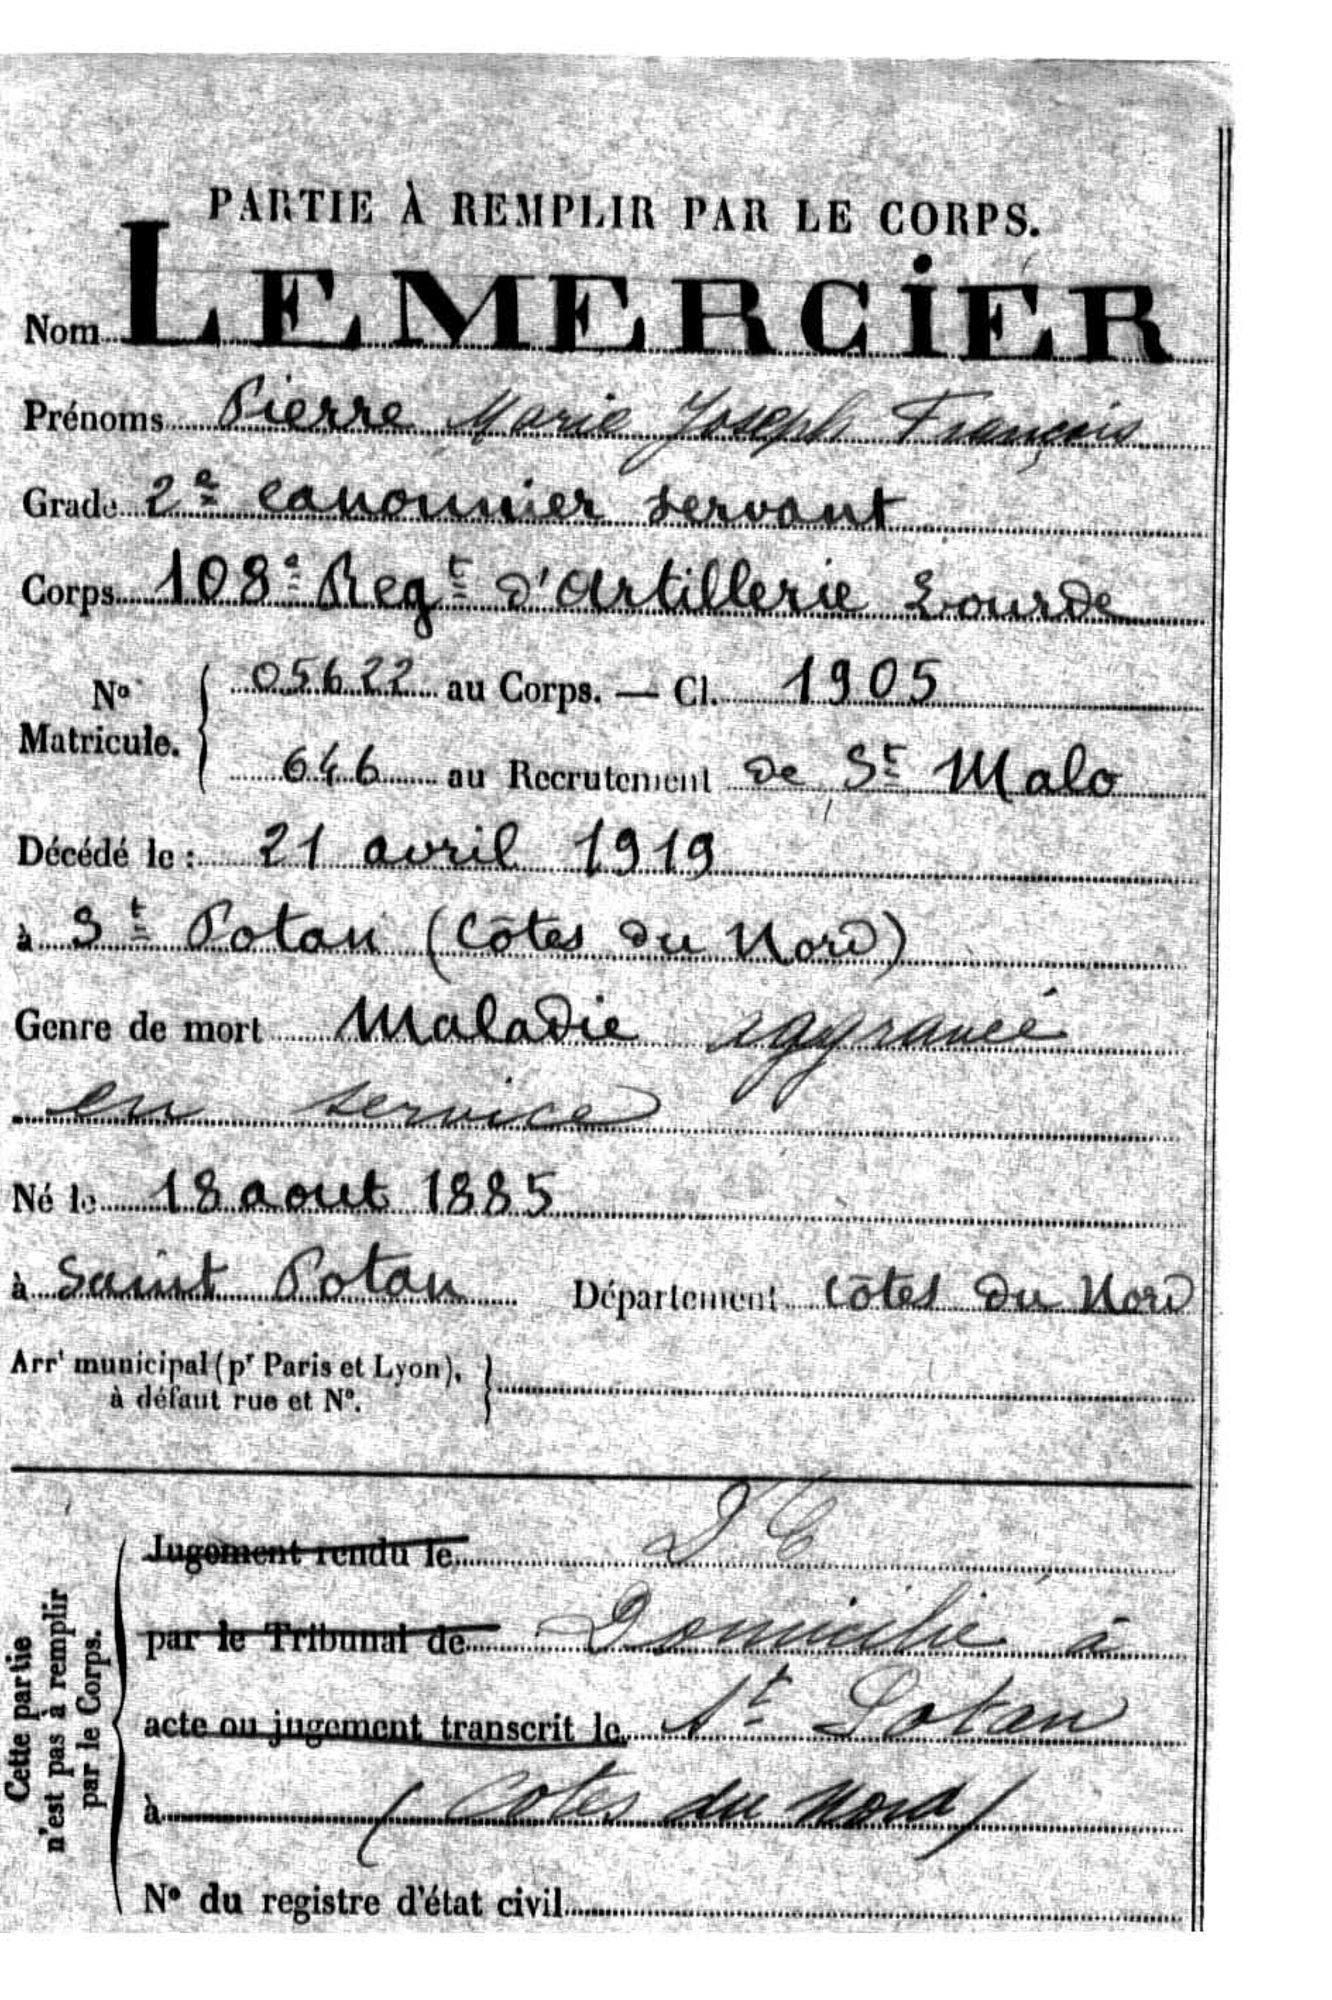 PARTIE À REMPLIR PAR LE CORPS.
Nom LEMERCIER
Prénoms Pierre Marie Joseph François
Grade 2e canonnier servant
Corps 108e Regt d'Artillerie Lourde
No Matricule. { 05622 au Corps. — Cl. 1905
646 au Recrutement de St Malo
Décédé le : 21 avril 1919
à St Potan (Côtes du Nord)
Genre de mort Maladie aggravée
en service
Né le 18 aout 1885
à Saint Potan Département Côtes du Nord
Arrt municipal (pr Paris et Lyon), }
à défaut rue et No.
Cette partie
n'est pas à remplir
par le Corps.
Jugement rendu le
par le Tribunal de Domicilié à
acte ou jugement transcrit le St Potan
à (Cotes du Nord)
No du registre d'état civil